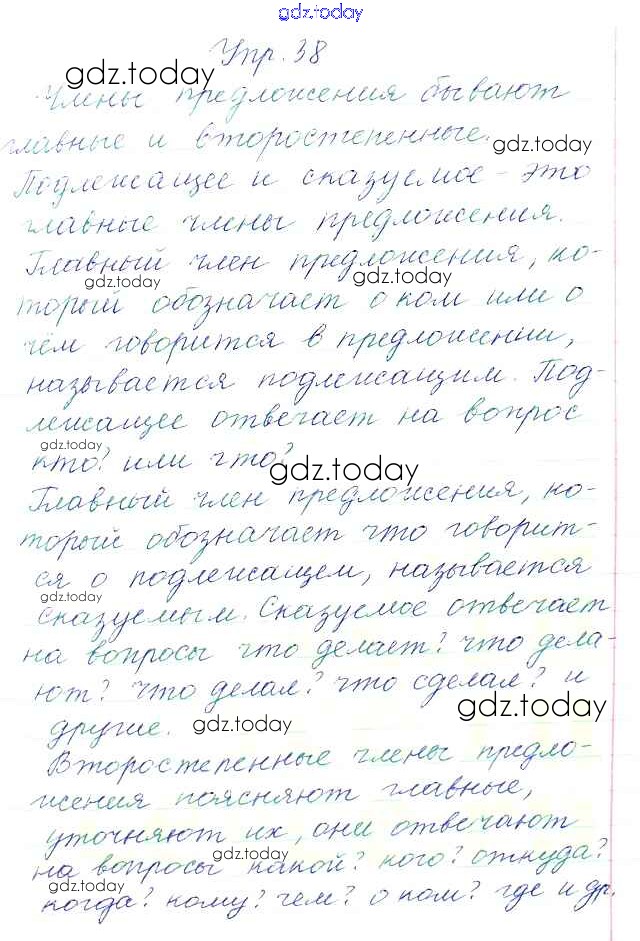 gdz.today
Упр. 38
gdz.today
Члены предложения бывают
главные и второстепенные.
gdz.today
Подлежащее и сказуемое - это
главные члены предложения.
Главный член предложения, ко-
gdz.today
gdz.today
торый обозначает о ком или о
чём говорится в предложении,
называется подлежащим. Под-
лежащее отвечает на вопрос
gdz.today
кто? или что?
gdz.today
Главный член предложения, ко-
торый обозначает что говорит-
ся о подлежащем, называется
gdz.today
сказуемым. Сказуемое отвечает
на вопросы что делает? что дела-
ют? Что делал? что сделал? и
gdz.today
другие.
gdz.today
Второстепенные члены предло-
жения поясняют главные,
уточняют их, они отвечают
gdz.today
на вопросы какой? кого? откуда?
gdz.today
когда? кому? чем? о ком? где и др.